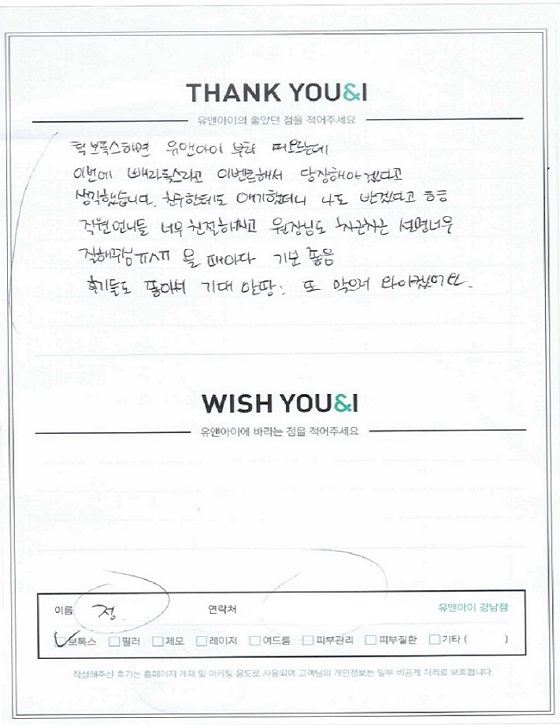 THANK YOU&I
유앤아이의 좋았던 점을 적어주세요
턱보톡스하면 유앤아이 부터 떠오르는데
이번에 빼라톡스라고 이벤트해서 당장해야겠다고
생각했습니다. 친구한테도 얘기했더니 나도 받겠다고 ㅎㅎ
직원언니들 너무 친절하시고 원장님도 차근차근 설명너무
잘해주심 ㅠㅅㅠ 올 때마다 기분 좋음
후기들도 좋아서 기대 만땅! 또 맞으러 와야겠어요.
WISH YOU&I
유앤아이에 바라는 점을 적어주세요
이름 정. 연락처 유앤아이 강남점
보톡스 필러 제모 레이저 여드름 피부관리 피부질환 기타 ( )
작성해주신 후기는 홈페이지 게재 및 마케팅 용도로 사용되며 고객님의 개인정보는 일부 비공개 처리로 보호됩니다.